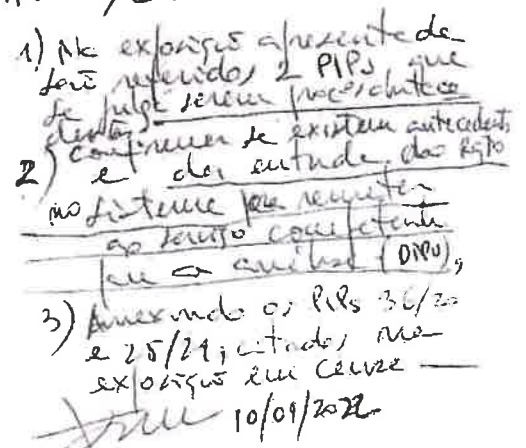 1) Na exposição apresentada
são referidos 2 PIPs que
se julga serem
2) confirmar se existem antecedentes
e dar entrada do Rgto
no sistema para remeter
ao serviço competente
para a análise (DIPU),
3) Anexando os PIPs 36/20
e 25/21, citados na
exposição em causa —
10/01/2022